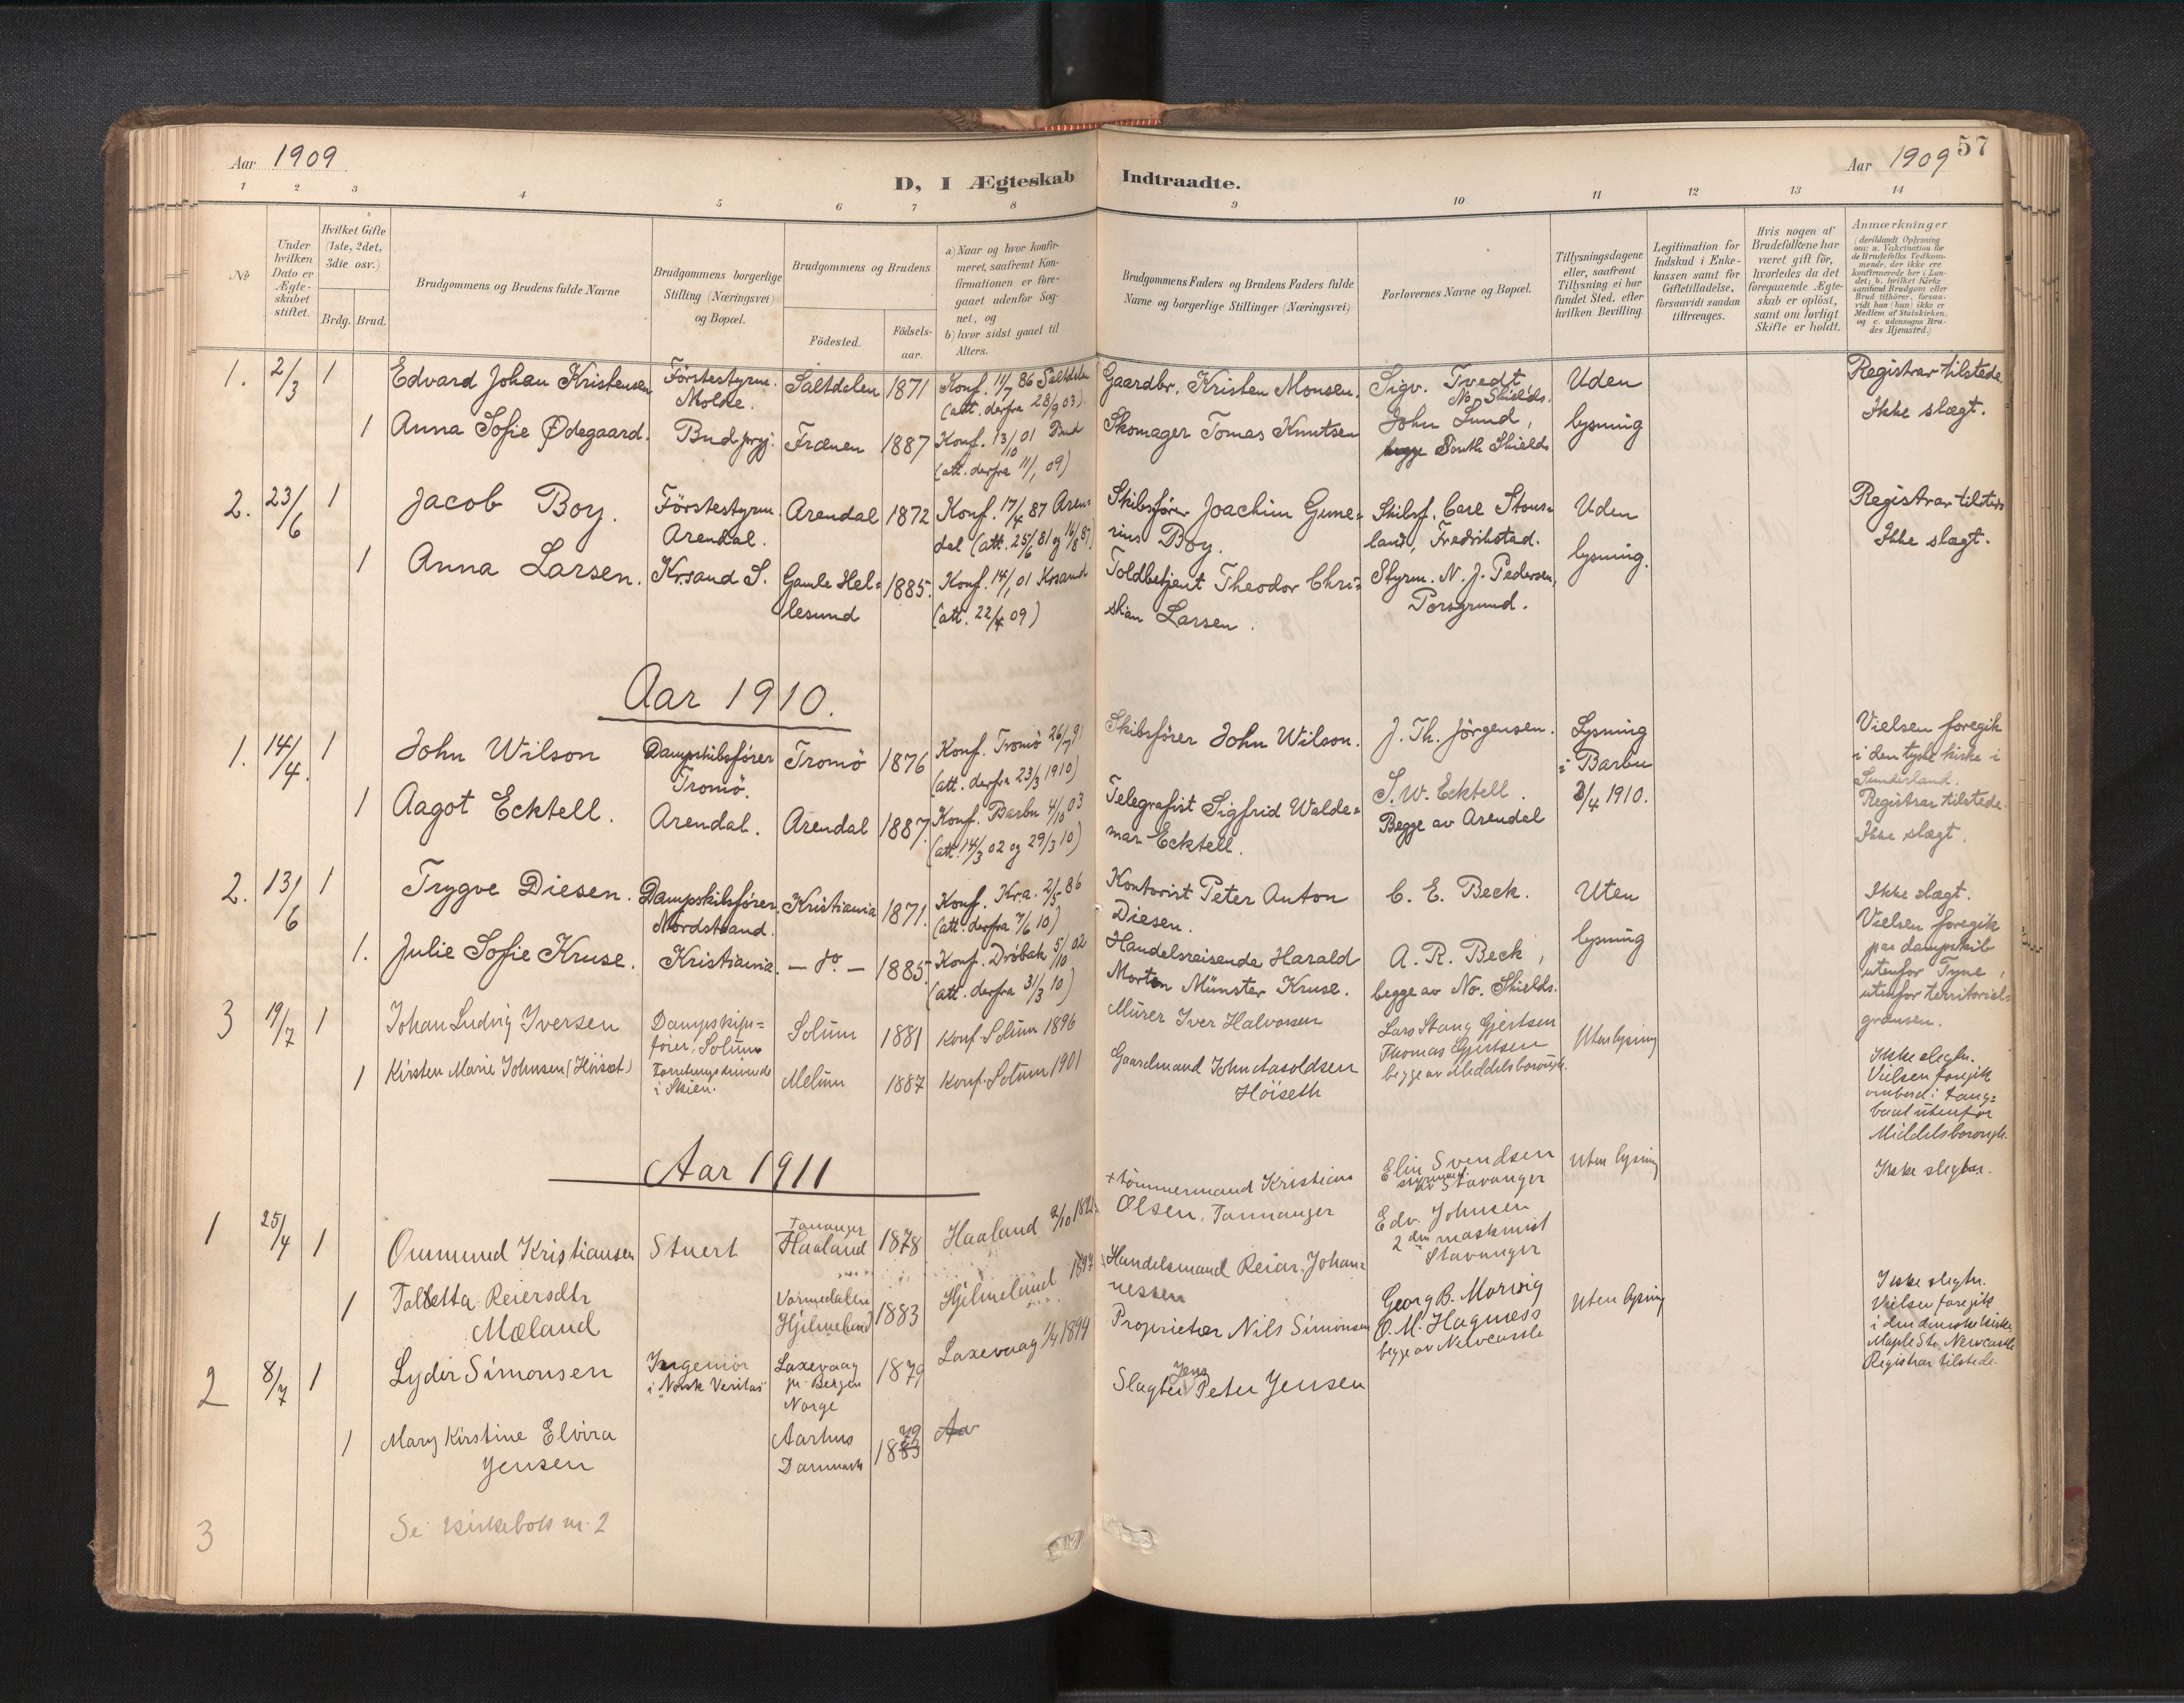 Aar 1909
D, I Ægteskab Indtraadte.
Aar 1909 57
1 2 3 4 5 6 7 8 9 10 11 12 13 14
No
Under hvilken Dato er Ægteskabet stiftet.
Hvilket Gifte (1ste, 2det, 3die osv.)
Brdg. Brud.
Brudgommens og Brudens fulde Navne
Brudgommens borgerlige Stilling (Næringsvei) og Bopæl.
Brudgommens og Brudens
Födested.
Födsels-aar.
a) Naar og hvor konfirmeret, saafremt Konfirmationen er foregaaet udenfor Sognet, og
b) hvor sidst gaaet til Alters.
Brudgommens Faders og Brudens Faders fulde Navne og borgerlige Stillinger (Næringsvei)
Forlovernes Navne og Bopæl.
Tillysningsdagene eller, saafremt Tillysning ei har fundet Sted, efter hvilken Bevilling.
Legitimation for Indskud i Enkekassen samt for Giftetilladelse, forsaavidt saadan tiltrænges.
Hvis nogen af Brudefolkene har været gift för, hvorledes da det foregaaende Ægteskab er oplöst, samt om lovligt Skifte er holdt.
Anmærkninger
(deriblandt Oplysning om: a. Vakcination for de Brudefolks Vedkommende, der ikke ere konfirmerede her i Landet; b. hvilket Kirkesamfund Brudgom eller Brud tilhörer, forsaavidt han (hun) ikke er Medlem af Statskirken, og c. udensogns Brudes Hjemsted.)
1. 2/3 1 Edvard Johan Kristensen Förstestyrm. Molde. Saltdalen 1871 Konf. 11/7 86 Saltdalen (att. derfra 28/9 03). Gaardbr. Kristen Monsen. Sigv. Tvedt, No. Shields. Uden Registrar tilstede.
1 Anna Sofie Ødegaard. Bud prgj. Frænen 1887 Konf. 13/10 01 Bud (att. derfra 11/1 09) Skomager Tomas Knutsen John Lund, begge South Shields lysning Ikke slægt.
2. 23/6 1 Jacob Boy. Förstestyrm. Arendal. Arendal 1872 Konf. 17/4 87 Arendal (att. 25/6 81 og 16/8 87) Skibsfører Joachim Gunerius Boy. Skibsf. Carl Stousland, Fredrikstad. Uden Registrar tilstede
1 Anna Larsen. Krsand S. Gamle Hellesund 1885. Konf. 14/1 01 Krsand (att. 22/4 09) Toldbetjent Theodor Christian Larsen. Styrm. N. J. Pedersen, Porsgrund. lysning. Ikke slægt.
Aar 1910.
1. 14/4. 1 John Wilson Dampskibsfører Tromö. Tromö 1876 Konf. Tromö 26/7 91 (att. derfra 23/3 1910) Skibsfører John Wilson. J. Th. Jörgensen. Lysning i Barbu Vielsen foregik i den tyske kirke i Sunderland.
1 Aagot Ecktell. Arendal. Arendal 1887. Konf. Barbu 4/10 03 (att. 14/3 02 og 29/3 10) Telegrafist Sigfrid Waldemar Ecktell. S. W. Ecktell. Begge av Arendal 3/4 1910. Registrar tilstede. Ikke slægt.
2. 13/6 1 Trygve Diesen. Dampskibsfører. Nordstrand. Kristiania 1871. Konf. Kra. 2/5 86 (att. derfra 7/6 10) Kontorist Peter Anton Diesen. C. E. Beck. Uten Ikke slægt. Vielsen foregik
1. Julie Sofie Kruse. Kristiania. – do. – 1885. Konf. Dröbak 5/10 02 (att. derfra 31/3 10) Handelsreisende Harald Morten Münster Kruse. A. R. Beck, begge av No. Shields. lysning paa dampskib utenfor Tyne, utenfor territorialgrænsen.
3 19/7 1 Johan Ludvig Iversen Dampskipsfører, Solum Solum 1881 Konf. Solum 1896 Murer Iver Halvorsen Lars Stang Gjertsen Thomas Gjertsen begge av Middelsborough. Uten lysning Ikke slegtn.
1 Kirsten Marie Johnsen (Höiset) i Skien. Melum 1887 Konf. Solum 1901 Gaardmand John Aasoldsen Höiseth Vielsen foregik ombord i taugbaat utenfor Middelsborough.
Aar 1911
1 25/4 1 Ommund Kristiansen Stuert Tananger Haaland 1878 Haaland 2/10 Tömmermand Kristian Olsen, Tannanger Elin Svendsen styrmand av Stavanger Uten lysning Ikke slegtn.
1 Talletta Reiersdtr Mæland Vormedalen Hjelmeland 1883 Hjelmeland 1897 Handelsmand Reiar Johannessen Edv. Johnsen 2den maskinist Stavanger
2 8/7 1 Lyder Simonsen Ingeniör i "Norsk Veritas" Laxevaag pr. Bergen Norge 1879 Laxevaag 1/4 1894 Proprietær Nils Simonsen Georg B. Morwig O. M. Hagness begge av Newcastle Uten lysning Ikke slegtn. Vielsen foregik i den danske kirke Maple Str. Newcastle Registrar tilstede.
1 Mary Kirstine Elvira Jensen Aarhus Danmark 1883 79 Aa Slagter Jens Peter Jensen
3 Se kirkebok nr. 2